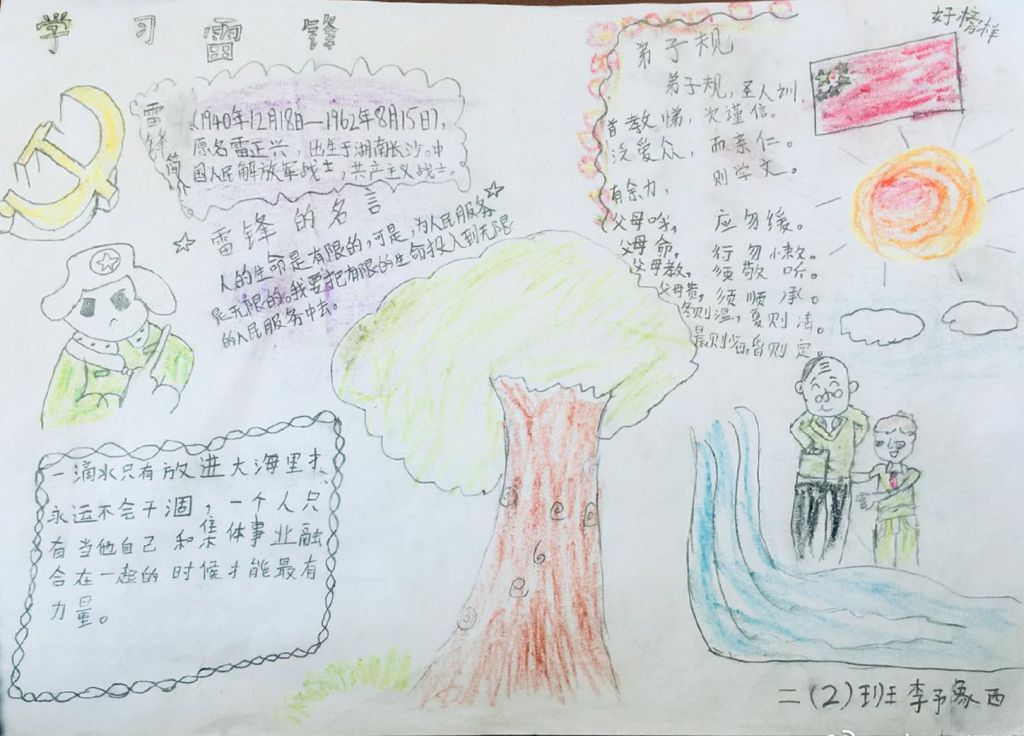 学习雷锋
好榜样
雷锋简
(1940年12月18日—1962年8月15日),
原名雷正兴,出生于湖南长沙。中
国人民解放军战士,共产主义战士。
雷锋的名言
人的生命是有限的,可是,为人民服务
是无限的。我要把有限的生命投入到无限
的人民服务中去。
一滴水只有放进大海里才、
永远不会干涸,一个人只
有当他自己和集体事业融
合在一起的时候才能最有
力量。
弟子规
弟子规,圣人训
首教悌,次谨信。
泛爱众,而亲仁。
有余力,则学文。
父母呼,应勿缓。
父母命,行勿懒。
父母教,须敬听。
父母责,须顺承。
冬则温,夏则清。
晨则省,昏则定。
二(2)班李予象西